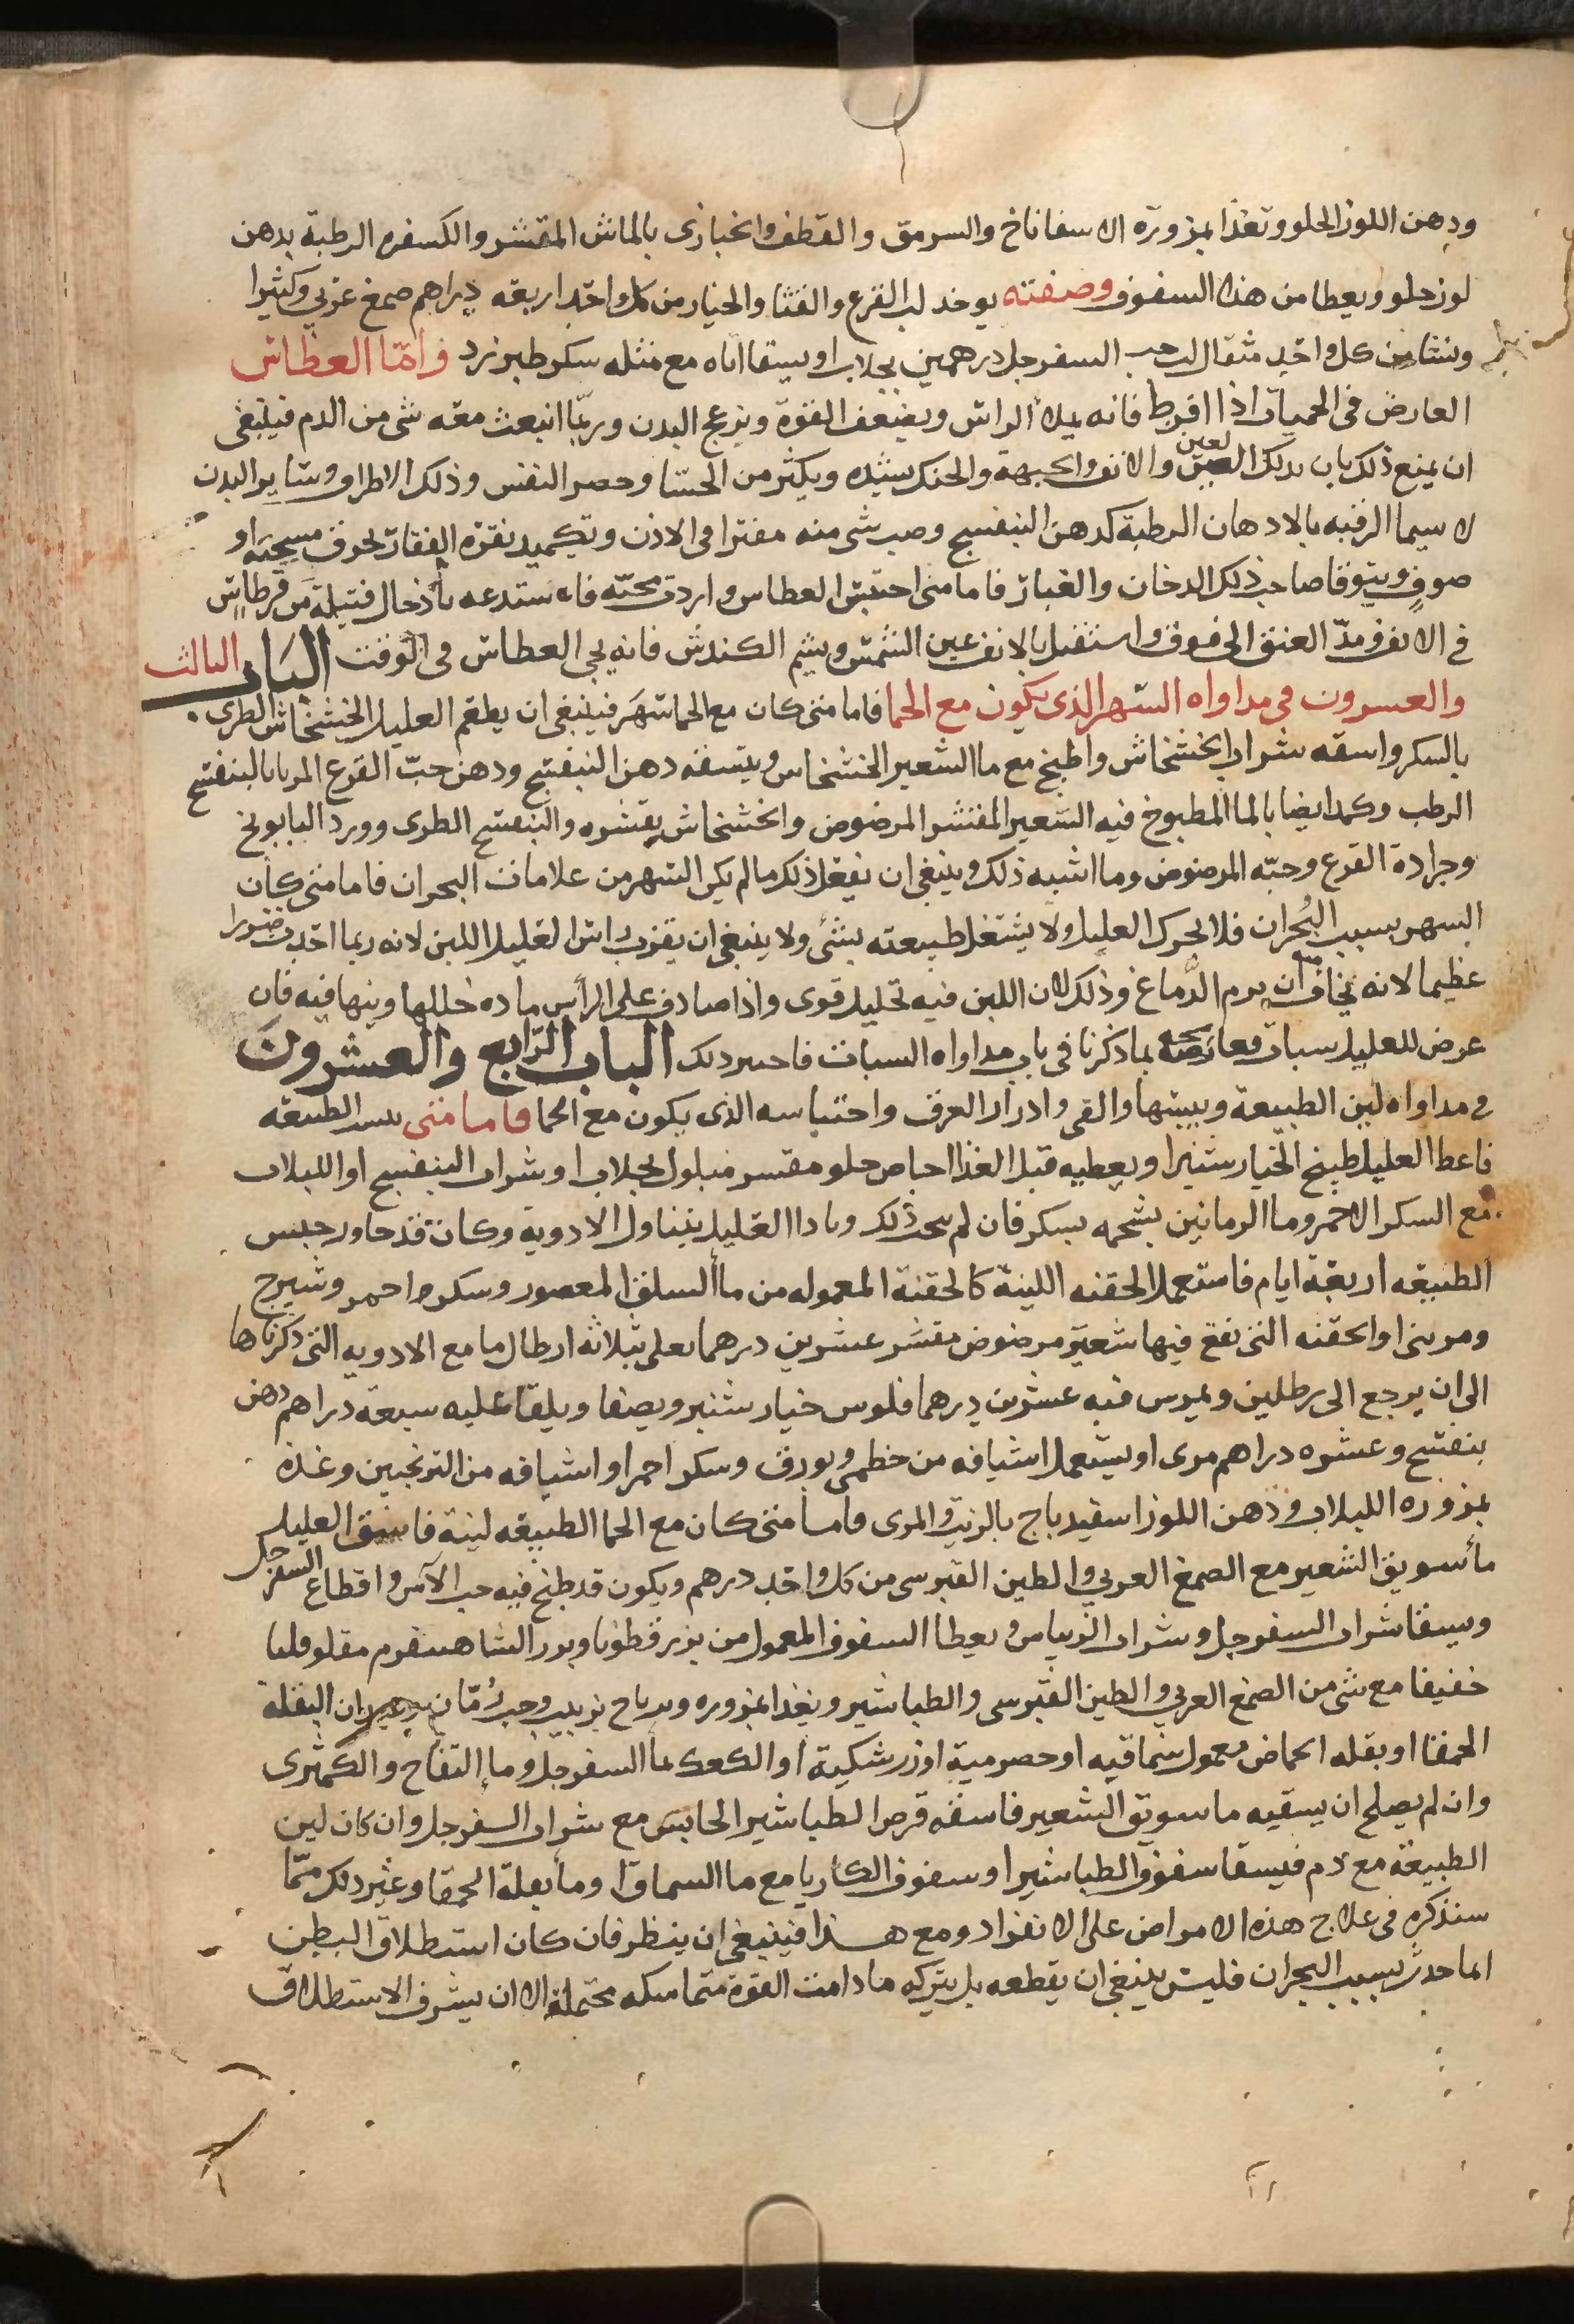 ودهن اللوز الحلو وتغذا بمزورة الاسفاناخ والسرمق والقطف والخبازى بالماش المقشر والكسفره الرطبة بدهن
لوز حلو ويعطا من هذا السفوف وصفته يوخد لب القرع والقثا والخيار من كل واحد اربعه دراهم صمغ عربي وكثيرا
ونشا من كل واحد مثقال لب حب السفرجل درهمين بجلاب او يستفا اياه مع مثله سكر طبرزد فامّا العطاس
العارض فى الحميات اذا افرط فانه يملا الراس ويضعف القوة ويزعج البدن وربما انبعث معه شى من الدم فينبغى
ان يمنع ذلك بان يدلك العين والانف والجبهة والحنك بشده ويكثر من الحسا وحصر النفس وذلك الاطراف وساير البدن
لا سيما الرقبه بالادهان الرطبة كدهن البنفسج وصب شى منه مفترا فى الاذن وتكميد نقرة القفا بخرق مسخنه او
صوفٍ ويتوقا صاحب ذلك الدخان والغبار فاما متى احتبس العطاس واردت محبته فاستدعه بأدخال فتيلة من قرطاس
في الانف ومدّ العنق الى فوق واستقبل بالانف عين الشمس ويشم الكندش فانه يجى العطاس فى الوقت الباب الثالث
والعسرون فى مداواه السهر الذى يكون مع الحما فاما متى كان مع الحما سهر فينبغى ان يطعم العليل الخشخاش الطرى
بالسكر واسقه شراب الخشخاش واطبخ مع ما الشعير الخشخاس ويتسفه دهن البنفسج ودهن حبّ القرع المربا بالبنفسج
الرطب وكمد ايضا بالما المطبوخ فيه الشعير المقشر المرضوض والخشخاش بقشره والبنفسج الطرى وورد البابونج
وجرادة القرع وحبّه المرضوض وما اشبه ذلك وينبغى ان يفعل ذلك ما لم يكن السهر من علامات البحران فاما متى كان
السهر بسبب البُحران فلا تحرك العليل ولا يشتغل طبيعته بشئ ولا ينبغى ان يقرب راس العليل اللبن لانه ربما احدث ضررا
عظيما لانه يخاف ان يرم الدّماغ وذلك لان اللبن فيه تحليل قوى واذا صادف على الرأس ماده حللها وينها فيه فان
عرض للعليل سبات فعالجه بما ذكرنا فى باب مداواه السبات فاحسر دلك الباب الرّابع والعشرون
فى مداواه لين الطبيعة ويبسها والقى وادرار العرق واحتباسه الذى يكون مع الحما فاما متى يبس الطبيعه
فاعط العليل طبيخ الخيار شنبر او يعطيه قبل الغذا اجاص حلو مقسر مبلول بجلاب او شراب البنفسج او اللبلاب
مع السكر الاحمر وما الرمانين بشحمه بسكر فان لم يجب ذلك وتاذا العليل بتناول الادوية وكان قد جاوز حبس
الطبيعه اربعة ايام فاستعمل الحقنه اللينة كالحقنة المعموله من ماأ السلق المعصور وسكر احمر وشيرج
ومرىنى او الحقنه التى تقع فيها شعير مرضوض مقشر عشرين درهما يغلى بثلاثه ارطال ما مع الادويه التى ذكرناها
الى ان يرجع الى رطلين ويمرس فيه عشرين درهما فلوس خيار شنبر ويصفا ويلقا عليه سبعة دراهم دهن
بنفسج وعشره دراهم مرى او يستعمل اشيافه من خطمى وبورق وسكر احمر او اشيافه من الترنجبين وغذه
بمزوره اللبلاب ودهن اللوز اسفيدباج بالزيت والمرى فاما متى كان مع الحما الطبيعه لينة فاسق العليل
مأ سويق الشعير مع الصمغ العربي والطين القبرسى من كل واحد درهم ويكون قد طبخ فيه حب الآس واقطاع السفرجل
ويسقا شراب السفرجل وشراب الريباس ويعطا السفوف المعمول من بزر قطونا وبزر الشاهسفرم مقلو قليا
خفيفا مع شى من الصمغ العربي والطين القبرسى والطباشير ويغذا بمزوره زيرباج بزبيب وحب رمّان البقلة
الحمقا او بقله الحماض معمول سماقيه او حصرمية او زرشكية أو الكعك بمأ السفرجل وما التفاح والكمثرى
وان لم يصلح ان يسقيه ما سويق الشعير فاسقه قرص الطباشير الحابس مع شراب السفرجل وان كان لين
الطبيعة مع دم فيسقا سفوف الطباشير او سفوف الكاربا مع ما السماق او ما بقلة الحمقا وغير دلك ممّا
سنذكره فى علاج هذه الامراض على الانفراد ومع هذا فينبغى ان ينظر فان كان استطلاق البطن
انما حدث بسبب البحران فليس ينبغى ان يقطعه بل يتركه ما دامت القوة متماسكه محتملة الا ان يسرف الاستطلاق